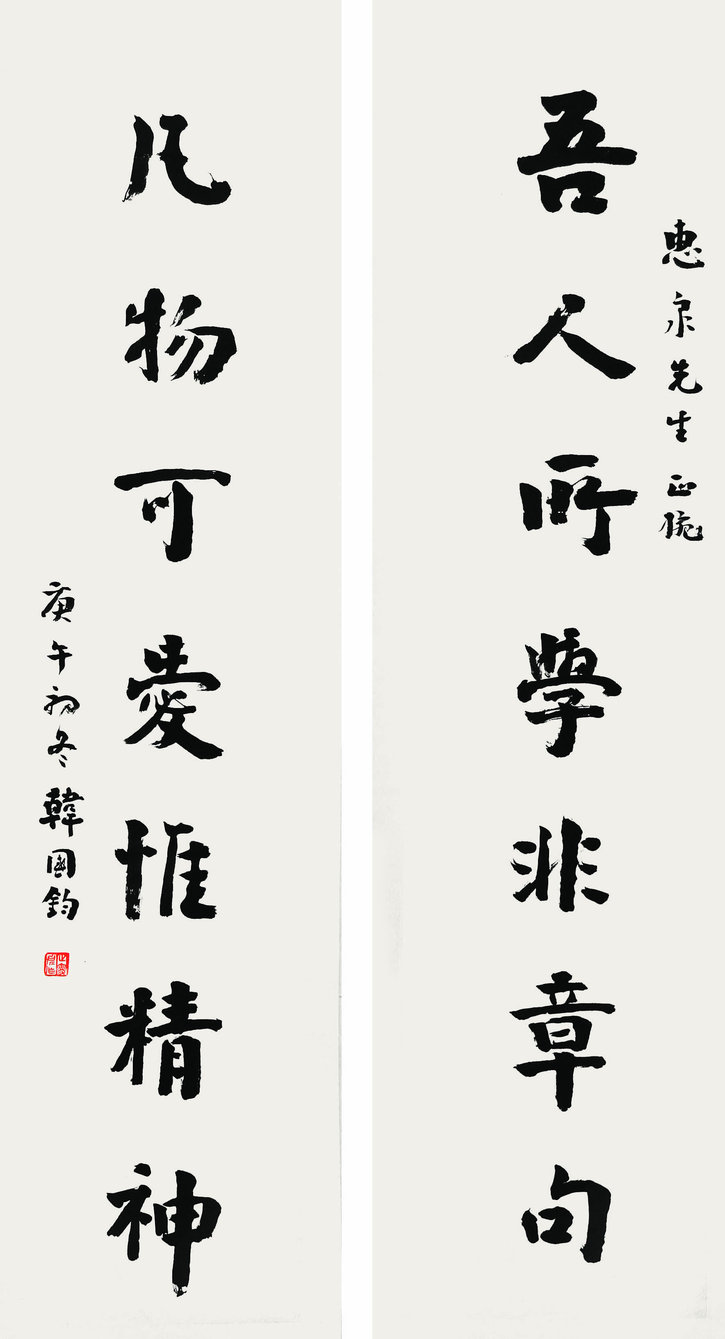 惠泉先生正腕
吾人所學非章句
凡物可愛惟精神
庚午初冬韓國鈞